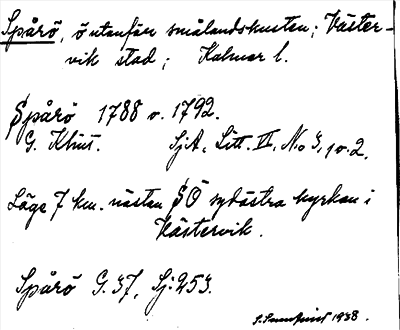 Spårö, ö utanför smålandskusten; Väster-
vik stad; Kalmar l.
Spårö 1788 o. 1792.
G. Klint. SjA, Litt. II, No 3, 1 o. 2.
Läge 7 km. nästan SÖ sydöstra kyrkan i
Västervik.
Spårö G. 37, Sj. 253.
1938.